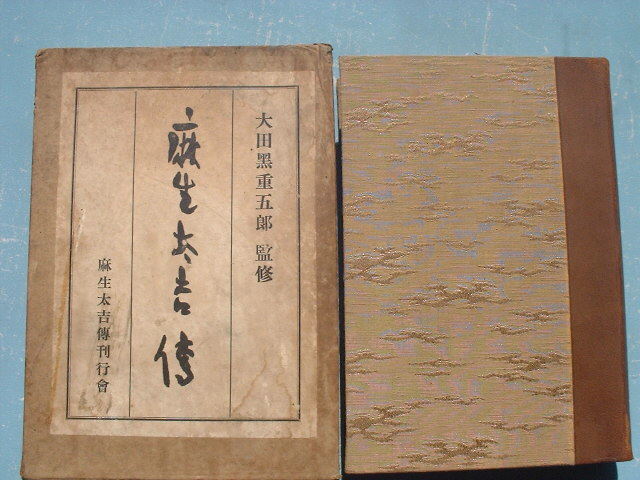 大田黑重五郎 監修
麻生太吉傳
麻生太吉傳刊行會